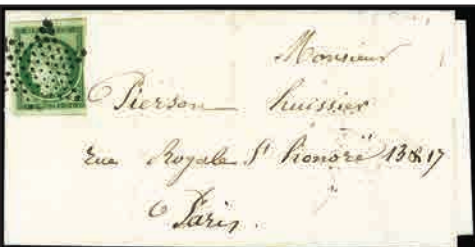 Monsieur
Pierson huissier
rue Royale St honoré 13 & 17
Paris.